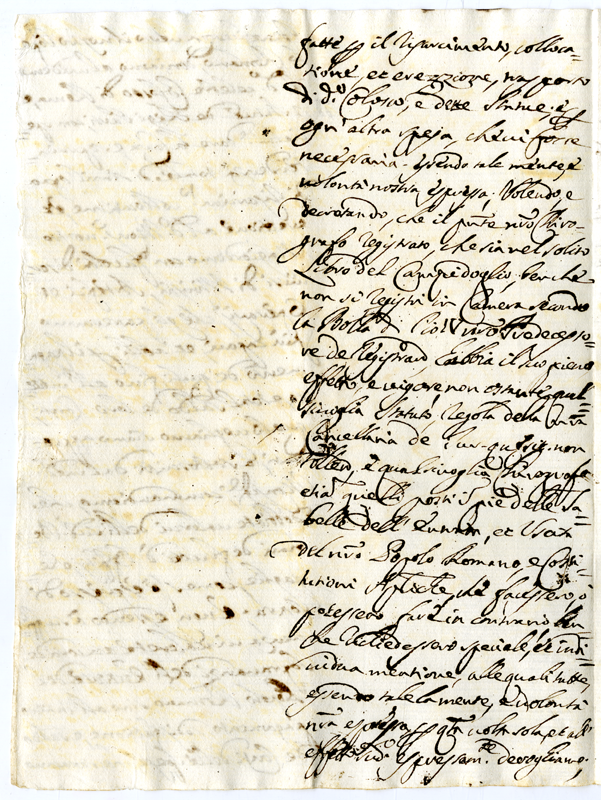 fatte il risarcimento, colloca=
tione, et erezzione, trasporto
di d.º Colosso, e dette Statue, e
ogni altra spesa, che vi forse
necessaria. essendo tale mente, e
volontà nostra espressa. Volendo, e
decretando, che il pnte nrõ Chiro=
grafo Registrato, che sia nel solito
Libro del Campidoglio, benche
non si Registri in Camera secondo
la Bolla di Pio IV nrõ Predecesso=
re de Registrand. habbia il suo pieno
effetto, e vigore, non ostante qual
sivoglia Statuto, Regola della nrã
Cancellaria de Iure quesito non
tollen, e qualsivoglia
quelli posti à pie delle Ta=
belle dell' Entrata, et Uscita
del nrõ Popolo Romano, e Costi=
tutioni Aplice, che facessero, ò
potessero fare in contrario ben
che richiedessero speciale, et indi=
vidua mentione, alle quali tutte,
essendo tale la mente, e volontà
nrã espressa p qta volta sola, et all'
effetto sud.º espressam.te deroghiamo,